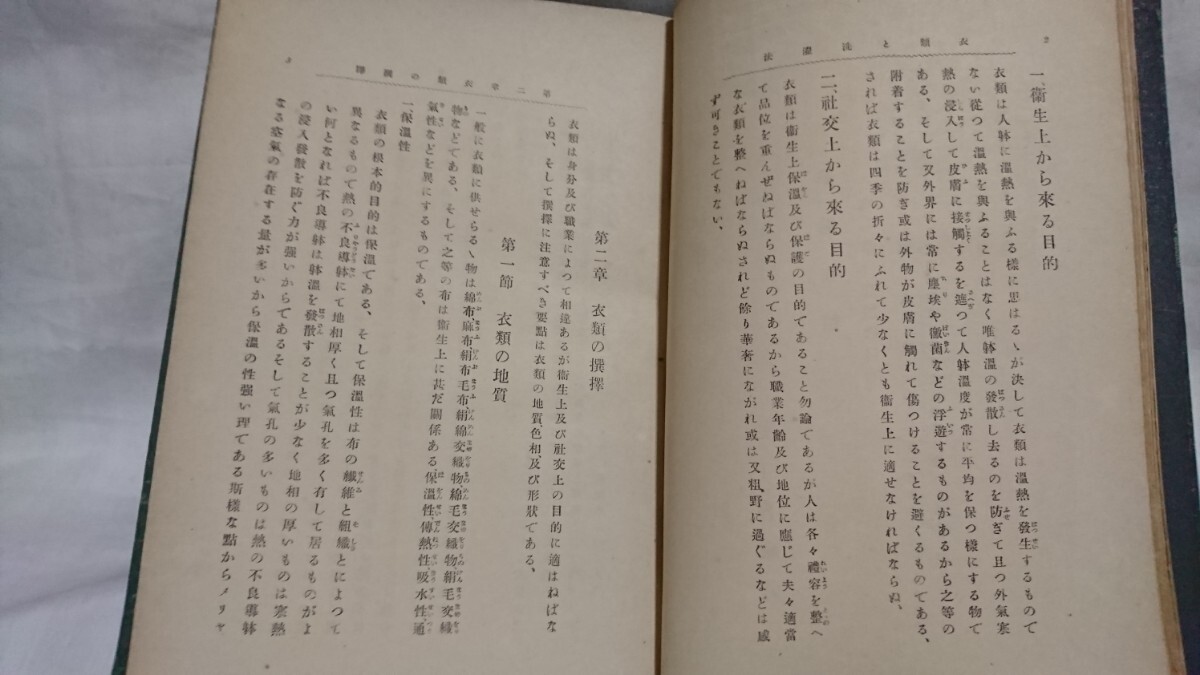 2
衣類と洗濯法
一、衞生上から來る目的
衣類は人躰に溫熱を與ふる樣に思はるゝが決して衣類は溫熱を發生するもので
ない從つて溫熱を與ふることはなく唯躰溫の發散し去るのを防ぎて且つ外氣寒
熱の浸入して皮膚に接觸するを遮つて人躰溫度が常に平均を保つ樣にする物で
ある、そして又外界には常に塵埃や黴菌などの浮遊するものがあるから之等の
附着することを防ぎ或は外物が皮膚に觸れて傷つけることを避くるものである、
されば衣類は四季の折々にふれて少なくとも衞生上に適せなければならぬ、
二、社交上から來る目的
衣類は衞生上保溫及び保護の目的であること勿論であるが人は各々禮容を整へ
て品位を重んぜねばならぬものであるから職業年齡及び地位に應じて夫々適當
な衣類を整へねばならぬされど餘り華奢にながれ或は又粗野に過ぐるなどは感
ず可きことでもない、
第二章 衣類の撰擇
3
第二章 衣類の撰擇
衣類は身分及び職業によつて相違あるが衞生上及び社交上の目的に適はねばな
らぬ、そして撰擇に注意すべき要點は衣類の地質色相、及び形狀である、
第一節 衣類の地質
一般に衣類に供せらるゝ物は綿布、麻布絹布毛布絹綿交織物綿毛交織物絹毛交織
物などである、そして之等の布は衞生上に甚だ關係ある保溫性、傳熱性吸水性通
氣性などを異にするものである、
一、保溫性
衣類の根本的目的は保溫である、そして保溫性は布の纎維と組織とによつて
異なるもので熱の不良導躰にて地相厚く且つ氣孔を多く有して居るものがよ
い何となれば不良導躰は躰溫を發散することが少なく地相の厚いものは寒熱
の浸入發散を防ぐ力が强いからであるそして氣孔の多いものは熱の不良導躰
なる空氣の存在する量が多いから保溫の性强い理である斯樣な點からメリヤ